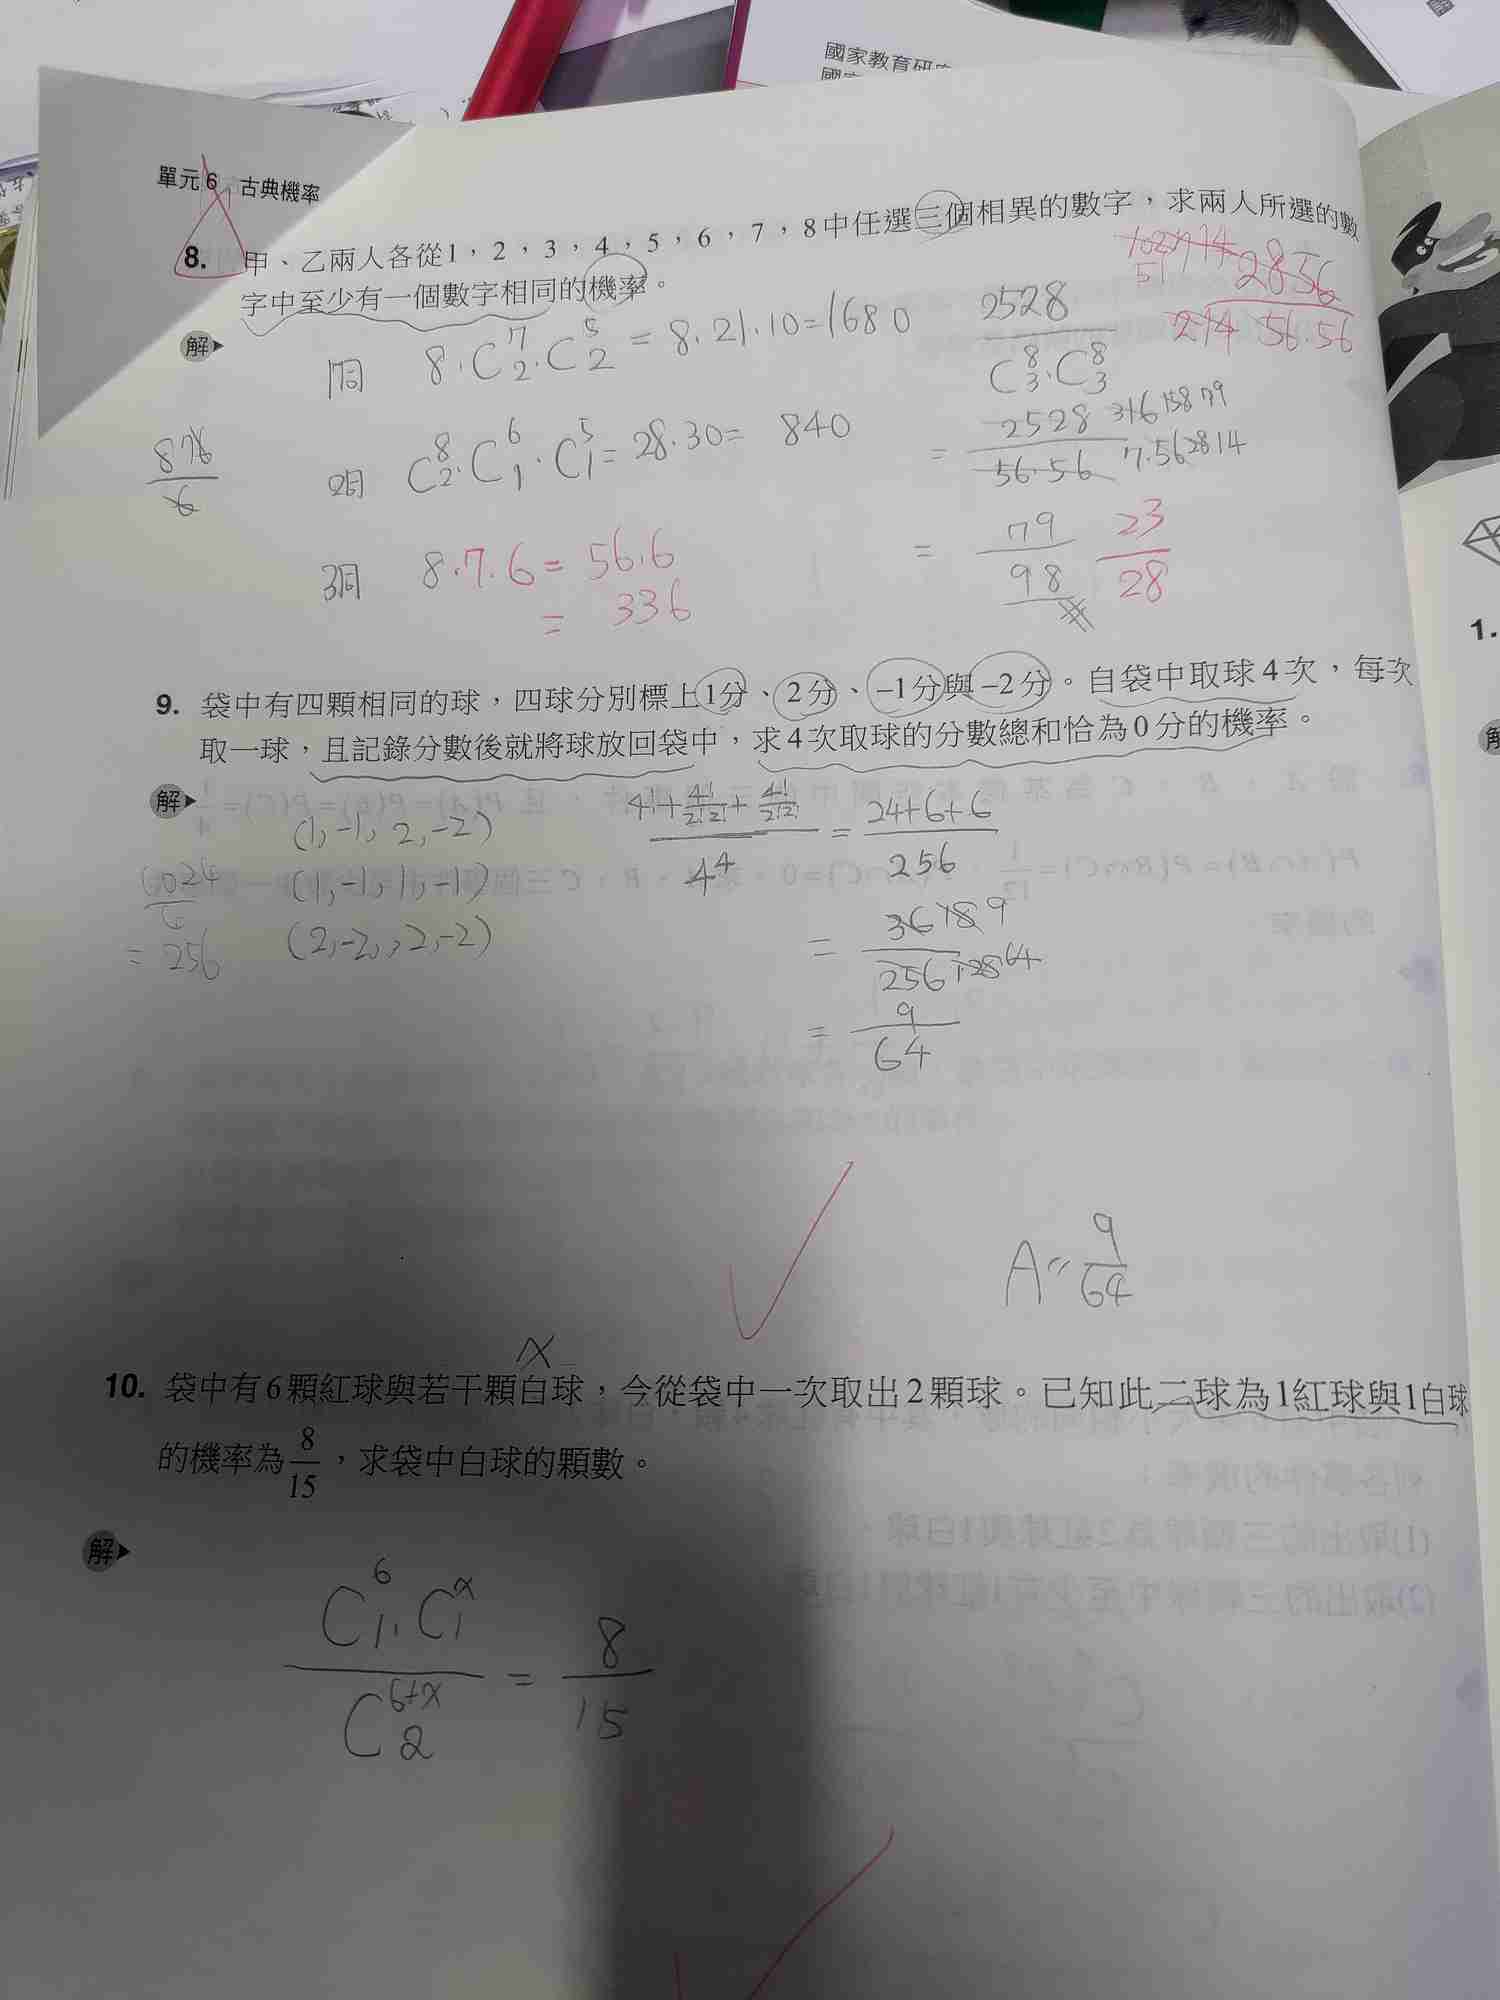 國家教育研
單元6 古典機率
8. 甲、乙兩人各從1,2,3,4,5,6,7,8中任選三個相異的數字,求兩人所選的數
字中至少有一個數字相同的機率。
解
1同 8·C⁷₂·C⁵₂=8·21·10=1680
2528
C⁸₃·C⁸₃
2856
56·56
876
6
2同 C⁸₂·C⁶₁·C⁵₁=28·30=840
= 2528 316 158 79
56·56 7·56 28 14
3同 8·7·6=56·6
= 336
= 79
98
23
28
9. 袋中有四顆相同的球,四球分別標上1分、2分、−1分與−2分。自袋中取球4次,每次
取一球,且記錄分數後就將球放回袋中,求4次取球的分數總和恰為0分的機率。
解
(1,-1,2,-2)
(1,-1,1,-1)
(2,-2,,2,-2)
1024
= 256
4!+4!/2!2!+4!/2!2!
4⁴
= 24+6+6
256
= 36 18 9
256 128 64
= 9
64
A= 9
64
x
10. 袋中有6顆紅球與若干顆白球,今從袋中一次取出2顆球。已知此二球為1紅球與1白球
的機率為8/15,求袋中白球的顆數。
解
C⁶₁·Cˣ₁
C⁶⁺ˣ₂
= 8
15
1.